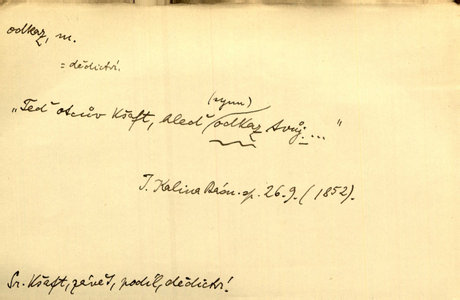 odkaz, m.
= dědictví.
(synu)
„Teď otcův Kšaft, hleď odkaz tvůj...."
J. Kalina Básn. sp. 26.9. (1852).
Sr. Kšaft, závěť, podíl, dědictví!